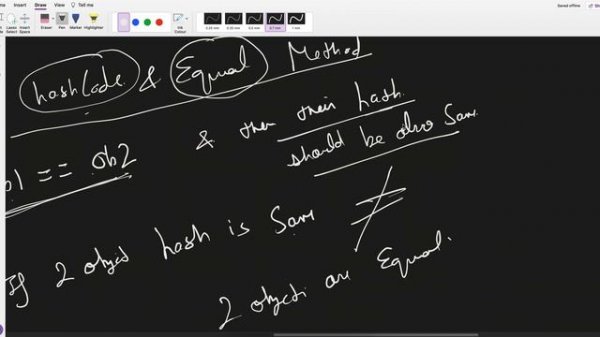 Draw View Tell me Saved offline
Lasso Select Insert Space Eraser Pen Marker Highlighter 0.25 mm 0.35 mm 0.5 mm 0.7 mm 1 mm
hashCode & Equal Method
b1 == Ob2 & then their hash
should be also Same
If 2 object hash is Same ≠
2 objects are Equal.